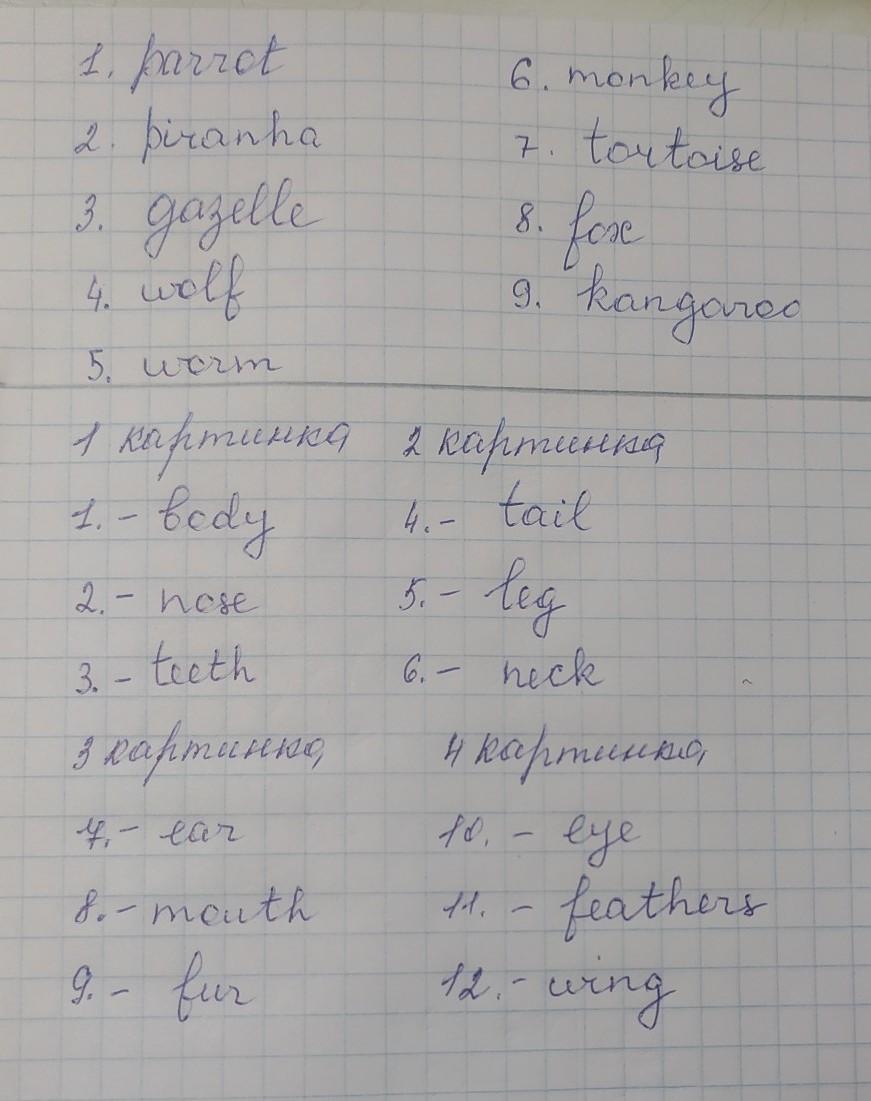 1. parrot
2. piranha
3. gazelle
4. wolf
5. worm
6. monkey
7. tortoise
8. fox
9. kangaroo
1 картинка
1. - body
2. - nose
3. - teeth
2 картинка
4. - tail
5. - leg
6. - neck
3 картинка
7. - ear
8. - mouth
9. - fur
4 картинка
10. - eye
11. - feathers
12. - wing